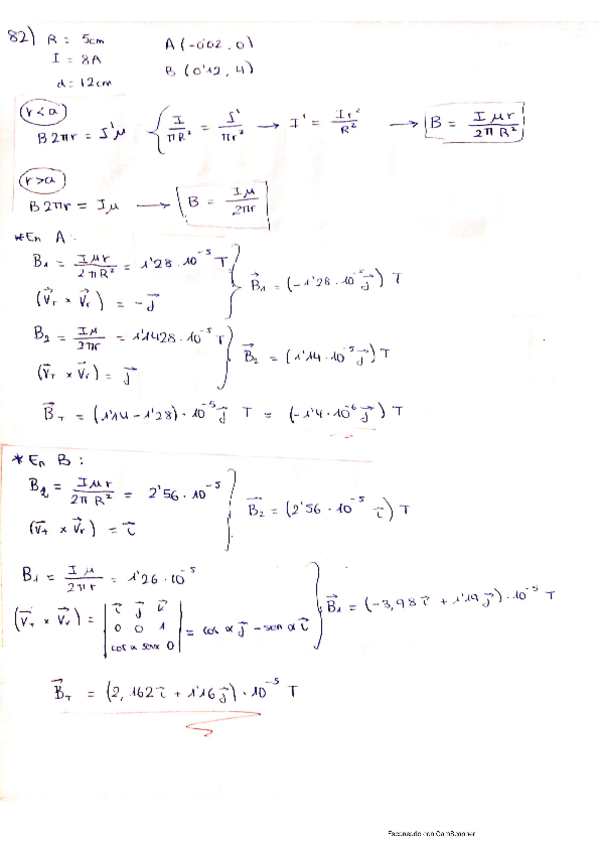 82) R = 5cm A(-0'02, 0)
I = 8A B (0'12, 4)
d = 12cm
r<a
B2πr = I'μ { I/πR² = I'/πr² → I' = Ir²/R² → B = Iμr/2πR²
r>a
B2πr = Iμ → B = Iμ/2πr
*En A:
B₁ = Iμr/2πR² = 1'28·10⁻⁵ T } B⃗₁ = (-1'28·10⁻⁵ j⃗) T
(v⃗ᵣ × v⃗ᵣ) = -j⃗
B₂ = Iμ/2πr = 1'1428·10⁻⁵ T } B⃗₂ = (1'14·10⁻⁵ j⃗) T
(v⃗ᵣ × v⃗ᵣ) = j⃗
B⃗ᴛ = (1'14-1'28)·10⁻⁵ j⃗ T = (-1'4·10⁻⁶ j⃗) T
* En B:
B₂ = Iμr/2πR² = 2'56·10⁻⁵ } B⃗₂ = (2'56·10⁻⁵ i⃗) T
(v⃗ᴛ × v⃗ᵣ) = i⃗
B₁ = Iμ/2πr = 1'26·10⁻⁵
(v⃗ᴛ × v⃗ᵣ) = | i⃗ j⃗ k⃗ | 0 0 1 | cos α sen α 0 | = cos α j⃗ - sen α i⃗ } B⃗₁ = (-3,98 i⃗ + 1'19 j⃗)·10⁻⁵ T
B⃗ᴛ = (2,162 i⃗ + 1'16 j⃗)·10⁻⁵ T
Escaneado con CamScanner